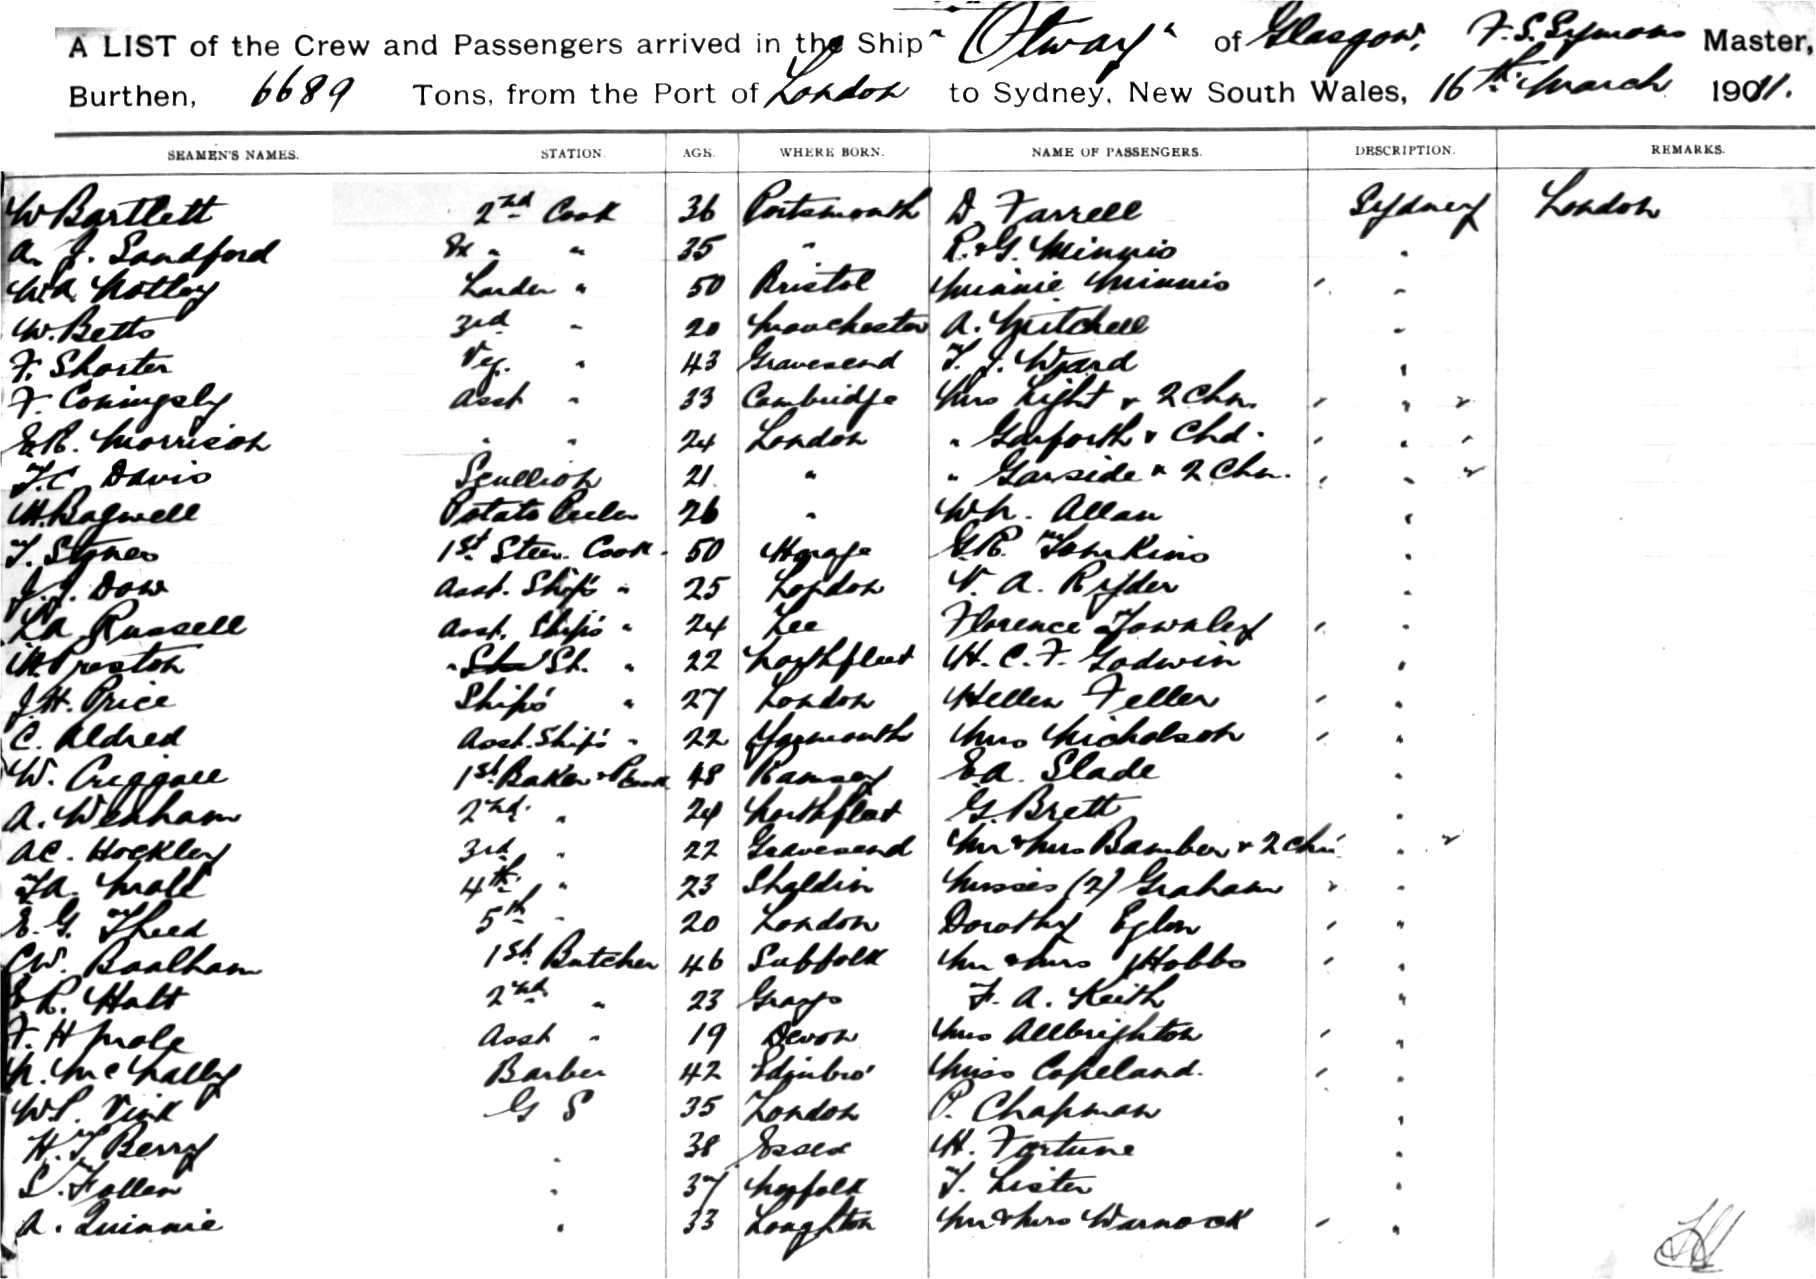 A LIST of the Crew and Passengers arrived in the Ship "Otway" of Glasgow, F. S. Symons Master,
Burthen, 6689 Tons, from the Port of London to Sydney, New South Wales, 16th March 1911.
SEAMEN'S NAMES. STATION. AGE. WHERE BORN. NAME OF PASSENGERS. DESCRIPTION. REMARKS.
W Bartlett 2nd Cook 36 Portsmouth D. Farrell Sydney London
A. J. Sandford Ex " " 35 " R. G. Minnis "
W.A. Notley Larder " 50 Bristol Minnie Minnis ' "
W. Betts 3rd " 20 Manchester A. Mitchell "
F. Shorter Veg. " 43 Gravesend T. J. Ward "
F. Coningsby Asst " 33 Cambridge Mrs Light & 2 Chn. ' " 2
E.R. Morrison " " 24 London " Garforth & Chd. ' " '
T.C. Davis Scullion 21 " " Garside & 2 Chn. ' " 2
H. Bagwell Potato Peeler 26 " Wm. Allan "
T. Stones 1st Steer. Cook 50 G.R. Tomkins "
J. J. Dow Asst. Ship's " 25 London V. A. Ryder "
Russell Asst. Ship's " 24 Lee Florence Townley ' "
H. Preston " Sh. " 22 Northfleet H. C. F. Godwin "
J.H. Price Ship's " 27 London Hellen Feller ' "
C. Aldred Asst. Ship's " 22 Yarmouth Mrs Nicholson ' "
W. Criggall 1st Baker & 48 Ramsey E.A. Slade "
A. Wenham 2nd " 24 Northfleet G. Brett "
A.C. Hockley 3rd " 22 Gravesend Mr & Mrs Bamber & 2 Chn " 2
4th " 23 Shaldin Misses (2) Graham 2 "
E. G. Theed 5th " 20 London Dorothy Eglon ' "
C.W. Baalham 1st Butcher 46 Suffolk Mr & Mrs Hobbs ' "
E.R. Holt 2nd " 23 Grays F. A. Keith "
F. H Mole Asst " 19 Devon Mrs Allbrighton ' "
N. McNalley Barber 42 Edinbro' Miss Copeland. ' "
W.P. Vink G S 35 London P. Chapman "
H. T. Berry " 38 Essex H. Fortune "
S. Follen " 37 Norfolk T. Lister "
A. Quinnie " 33 Loughton Mr & Mrs Warnock ' "